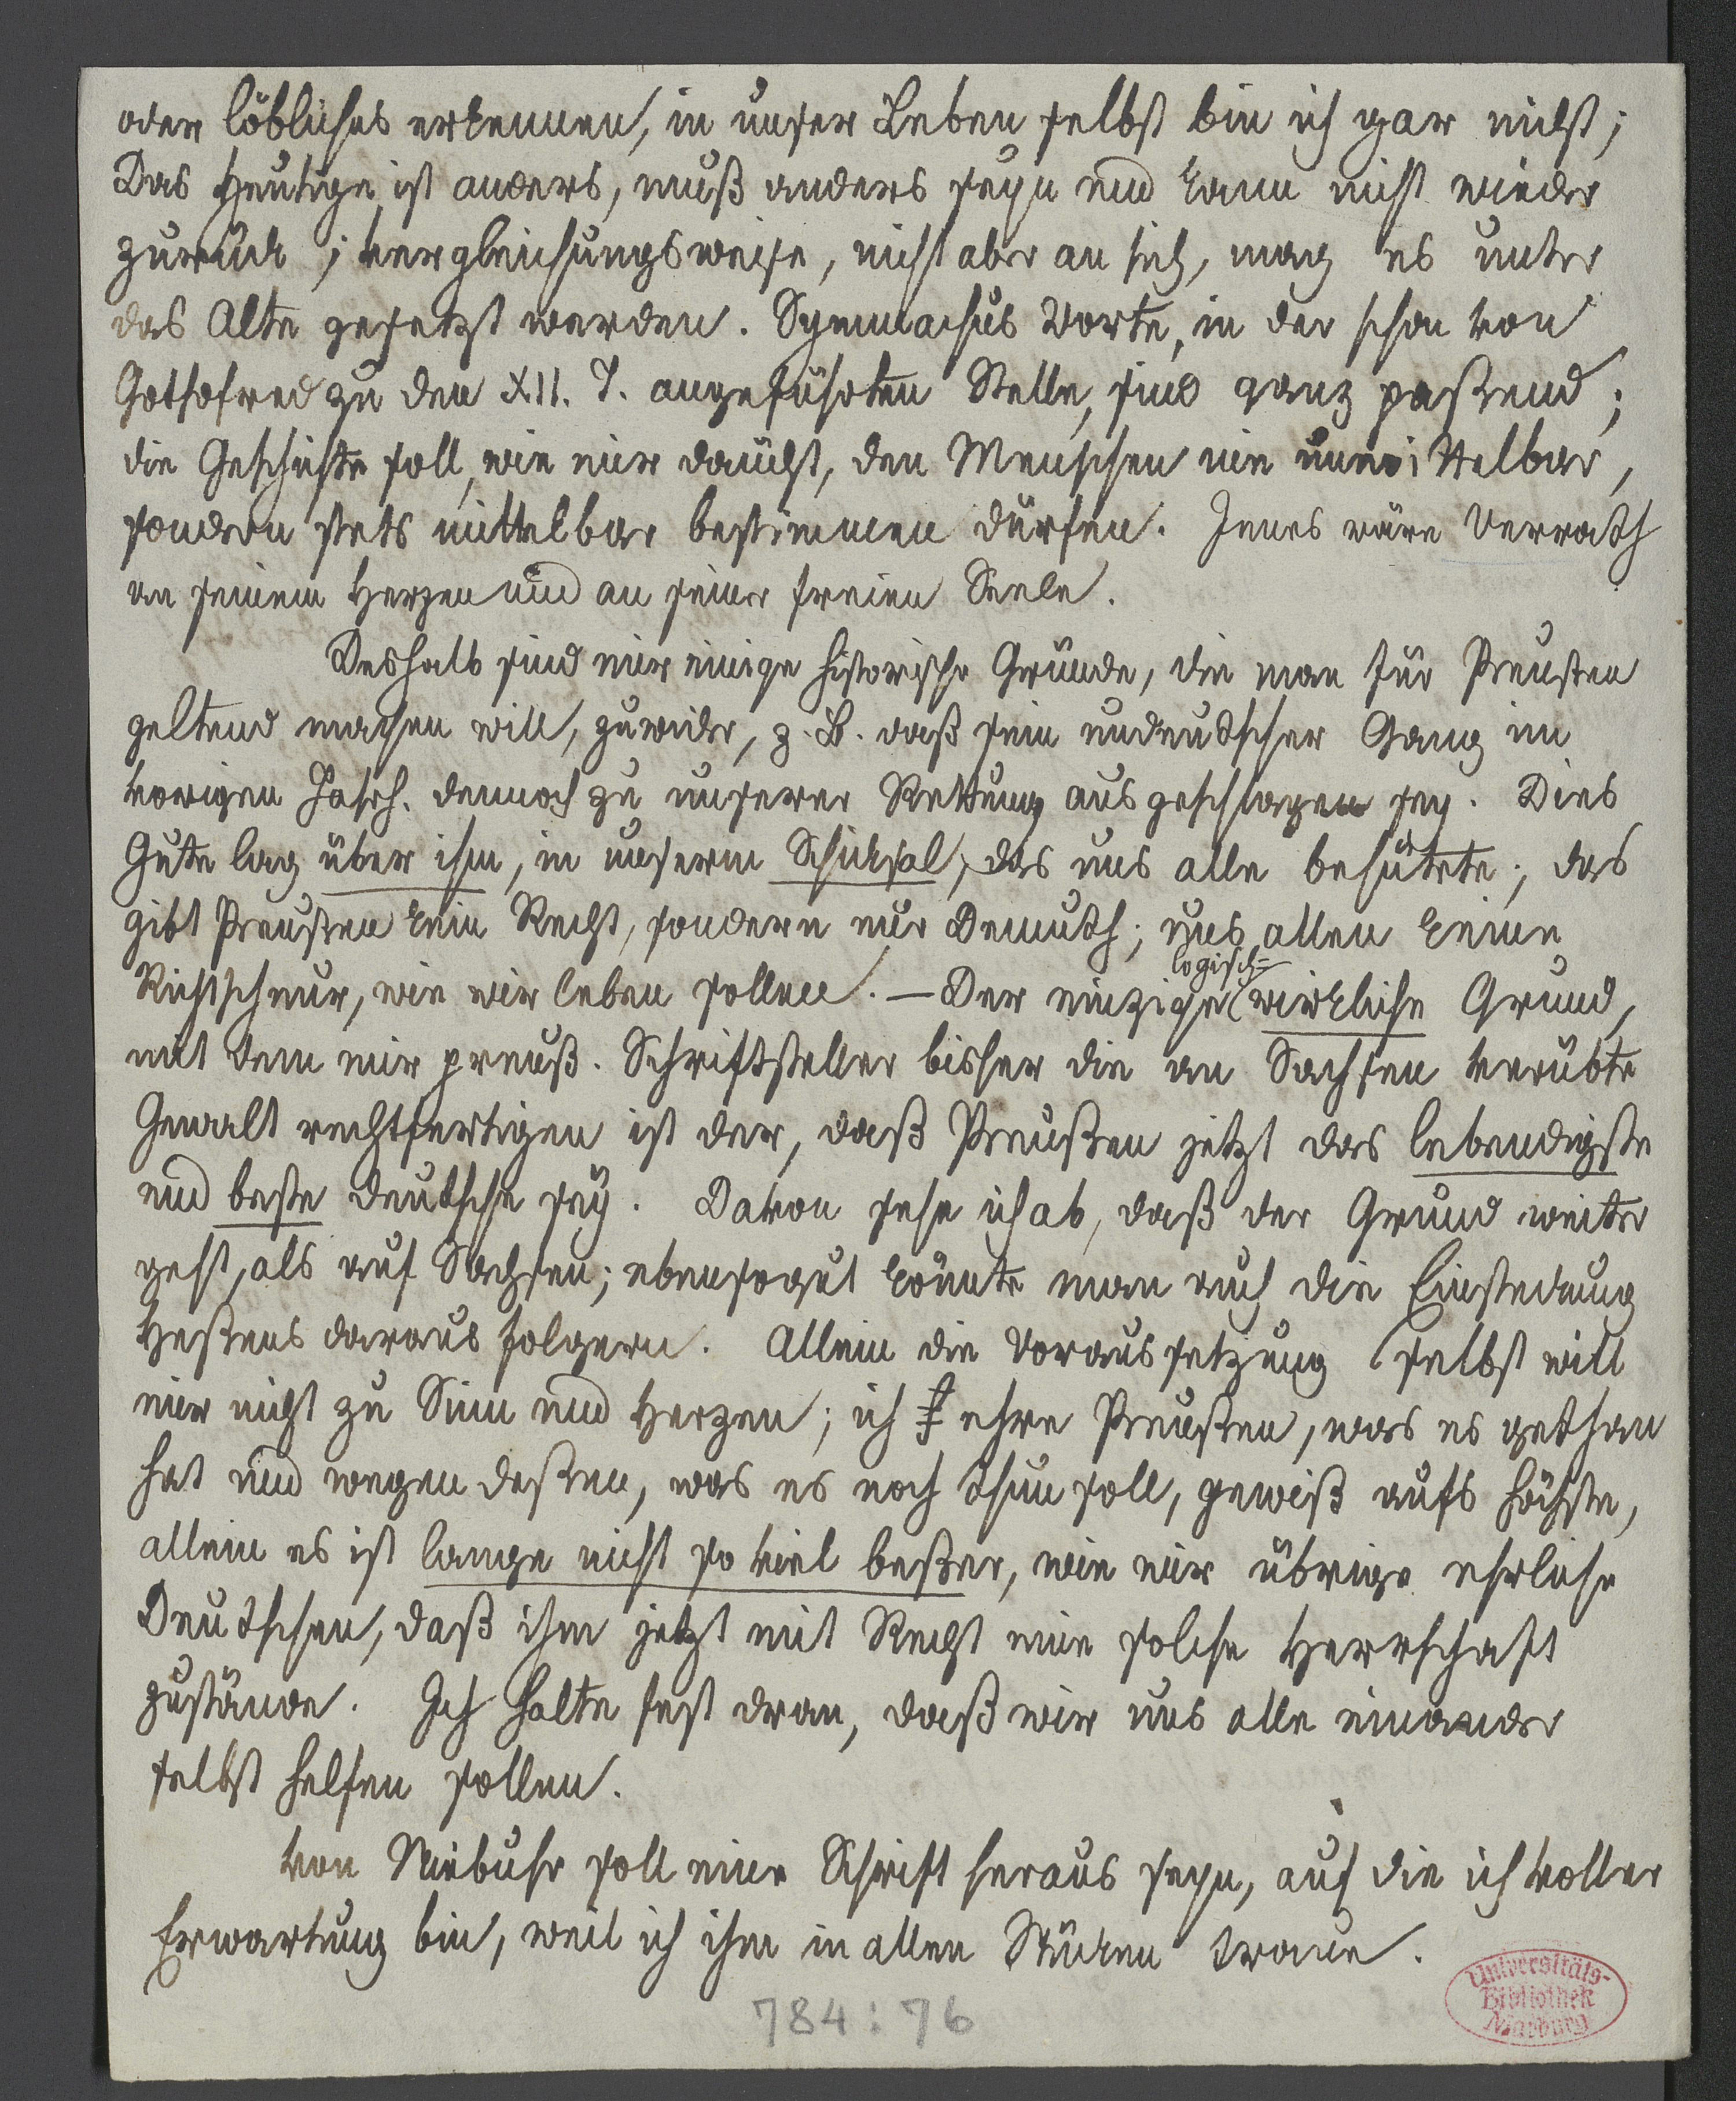 oder löbliches erkennen, in unser Leben selbst bin ich gar nicht;
Das Heutige ist anders, muß anders seyn und kann nicht wieder
zurück; vergleichungsweise, nicht aber an sich, mag es unter
das Alte gesetzt werden. Symmachus Worte, in der schon von
Gothofred zu den XII. T. angeführten Stelle, sind ganz paßend;
die Geschichte soll, wie mir däucht, den Menschen nie unmittelbar,
sondern stets mittelbar bestimmen dürfen. Jenes wäre Verrath
an seinem Herzen und an seiner freien Seele.
Deshalb sind mir einige historische Gründe, die man für Preußen
geltend machen will, zuwider, z. B. daß sein undeutscher Gang im
vorigen Jahrh. dennoch zu unserer Rettung ausgeschlagen sey. Dies
Gute lag über ihm, in unserm Schicksal, das uns alle behütete; das
gibt Preußen kein Recht, sondern nur Demuth; uns allen keine
Richtschnur, wie wir leben sollen. — Der einzige logisch-wirkliche Grund,
mit dem mir preuß. Schriftsteller bisher die an Sachsen verübte
Gewalt rechtfertigen ist der, daß Preußen jetzt das lebendigste
und beste deutsche sey. Davon sehe ich ab, daß der Grund weiter
geht, als auf Sachsen; ebensogut könnte man auch die Einsteckung
Heßens daraus folgern. Allein die Voraussetzung selbst will
mir nicht zu Sinn und Herzen; ich ehre Preußen, was es gethan
hat und wegen deßen, was es noch thun soll, gewiß aufs höchste,
allein es ist lange nicht so viel beßer, wie wir übrige ehrliche
Deutschen, daß ihm jetzt mit Recht eine solche Herrschaft
zustände. Ich halte fest dran, daß wir uns alle einander
selbst helfen sollen.
von Niebuhr soll eine Schrift heraus seyn, auf die ich voller
Erwartung bin, weil ich ihm in allen Stücken traue.
784:76
Universitäts-
Bibliothek
Marburg